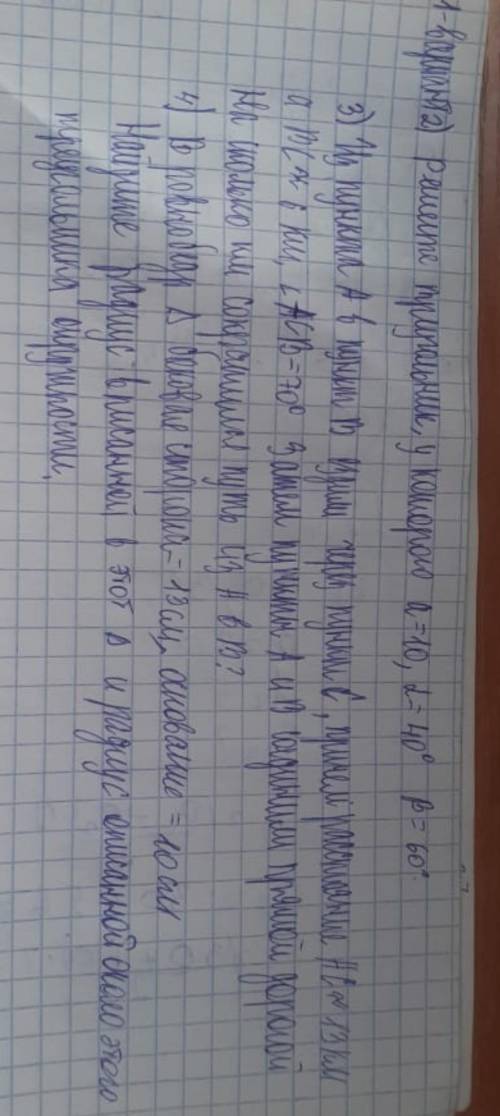 1-вариант2) Решите треугольник, у которого a=10, α=40° β=60°.
3) Из пункта A в пункт B едут через пункт C, причем расстояние AC≈13км
а BC≈8 км, ∠ACB=70° Затем пункты A и B соединили прямой дорогой
На сколько км сократился путь из A в B?
4) В равнобедр Δ боковые стороны = 13см, основание = 10 см
Найдите радиус вписанной в этот Δ и радиус описанной около этого
треугольника окружности.